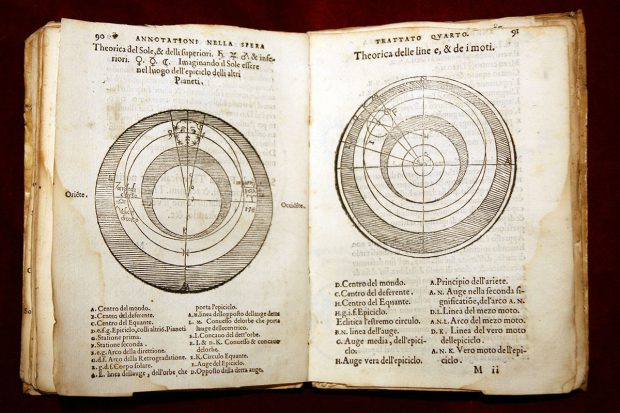 90
ANNOTATIONI NELLA SPERA
Theorica del Sole, & delli superiori. ♄ ♃ ♂ & infe-
riori. ♀ ☿ ☾ Imaginando il Sole essere
nel luogo dell'epiciclo delli altri
Pianeti.
Oriẽte.
Occidẽte.
A. Centro del mondo.
B. Centro del deferente.
C. Centro del Equante.
D.e.f.g. Epiciclo, colli altri s. Pianeti
G. Statione prima.
D. Statione seconda.
e.g. Arco della direttione.
G.d.f. Arco della Retrogradatione.
g.d.f. Corpo solare.
linea dell'auge, dell'orbe che
porta l'epiciclo.
A. linea dell'opposito dell'auge
L. M. Conuesso delorbe che porta
lauge dell'eccentrico.
I. Concauo dell'orbe.
N. K. Conuesso & concauo
delorbe.
K. Circulo Equante.
Auge del Epiciclo.
D. Opposito della detta auge.
TRATTATO QVARTO.
91
Theorica delle linee, & de i moti.
D. Centro del mondo.
C. Centro del deferente.
H. Centro del Equante.
H.g.i.f. Epiciclo.
Eclitica l'estremo circulo.
B.N. linea dell'auge.
G. Auge media, dell'epici-
clo.
H. Auge vera dell'epiciclo.
A. Principio dell'ariete.
A. N. Auge nella seconda si-
gnificatiõe, del'arco A.N.
D.L. Linea del mezo moto.
A.N.L. Arco del mezo moto.
D. K. Linea del vero moto
dellepiciclo.
A. N. K. Vero moto dell'epi-
ciclo.
M ii